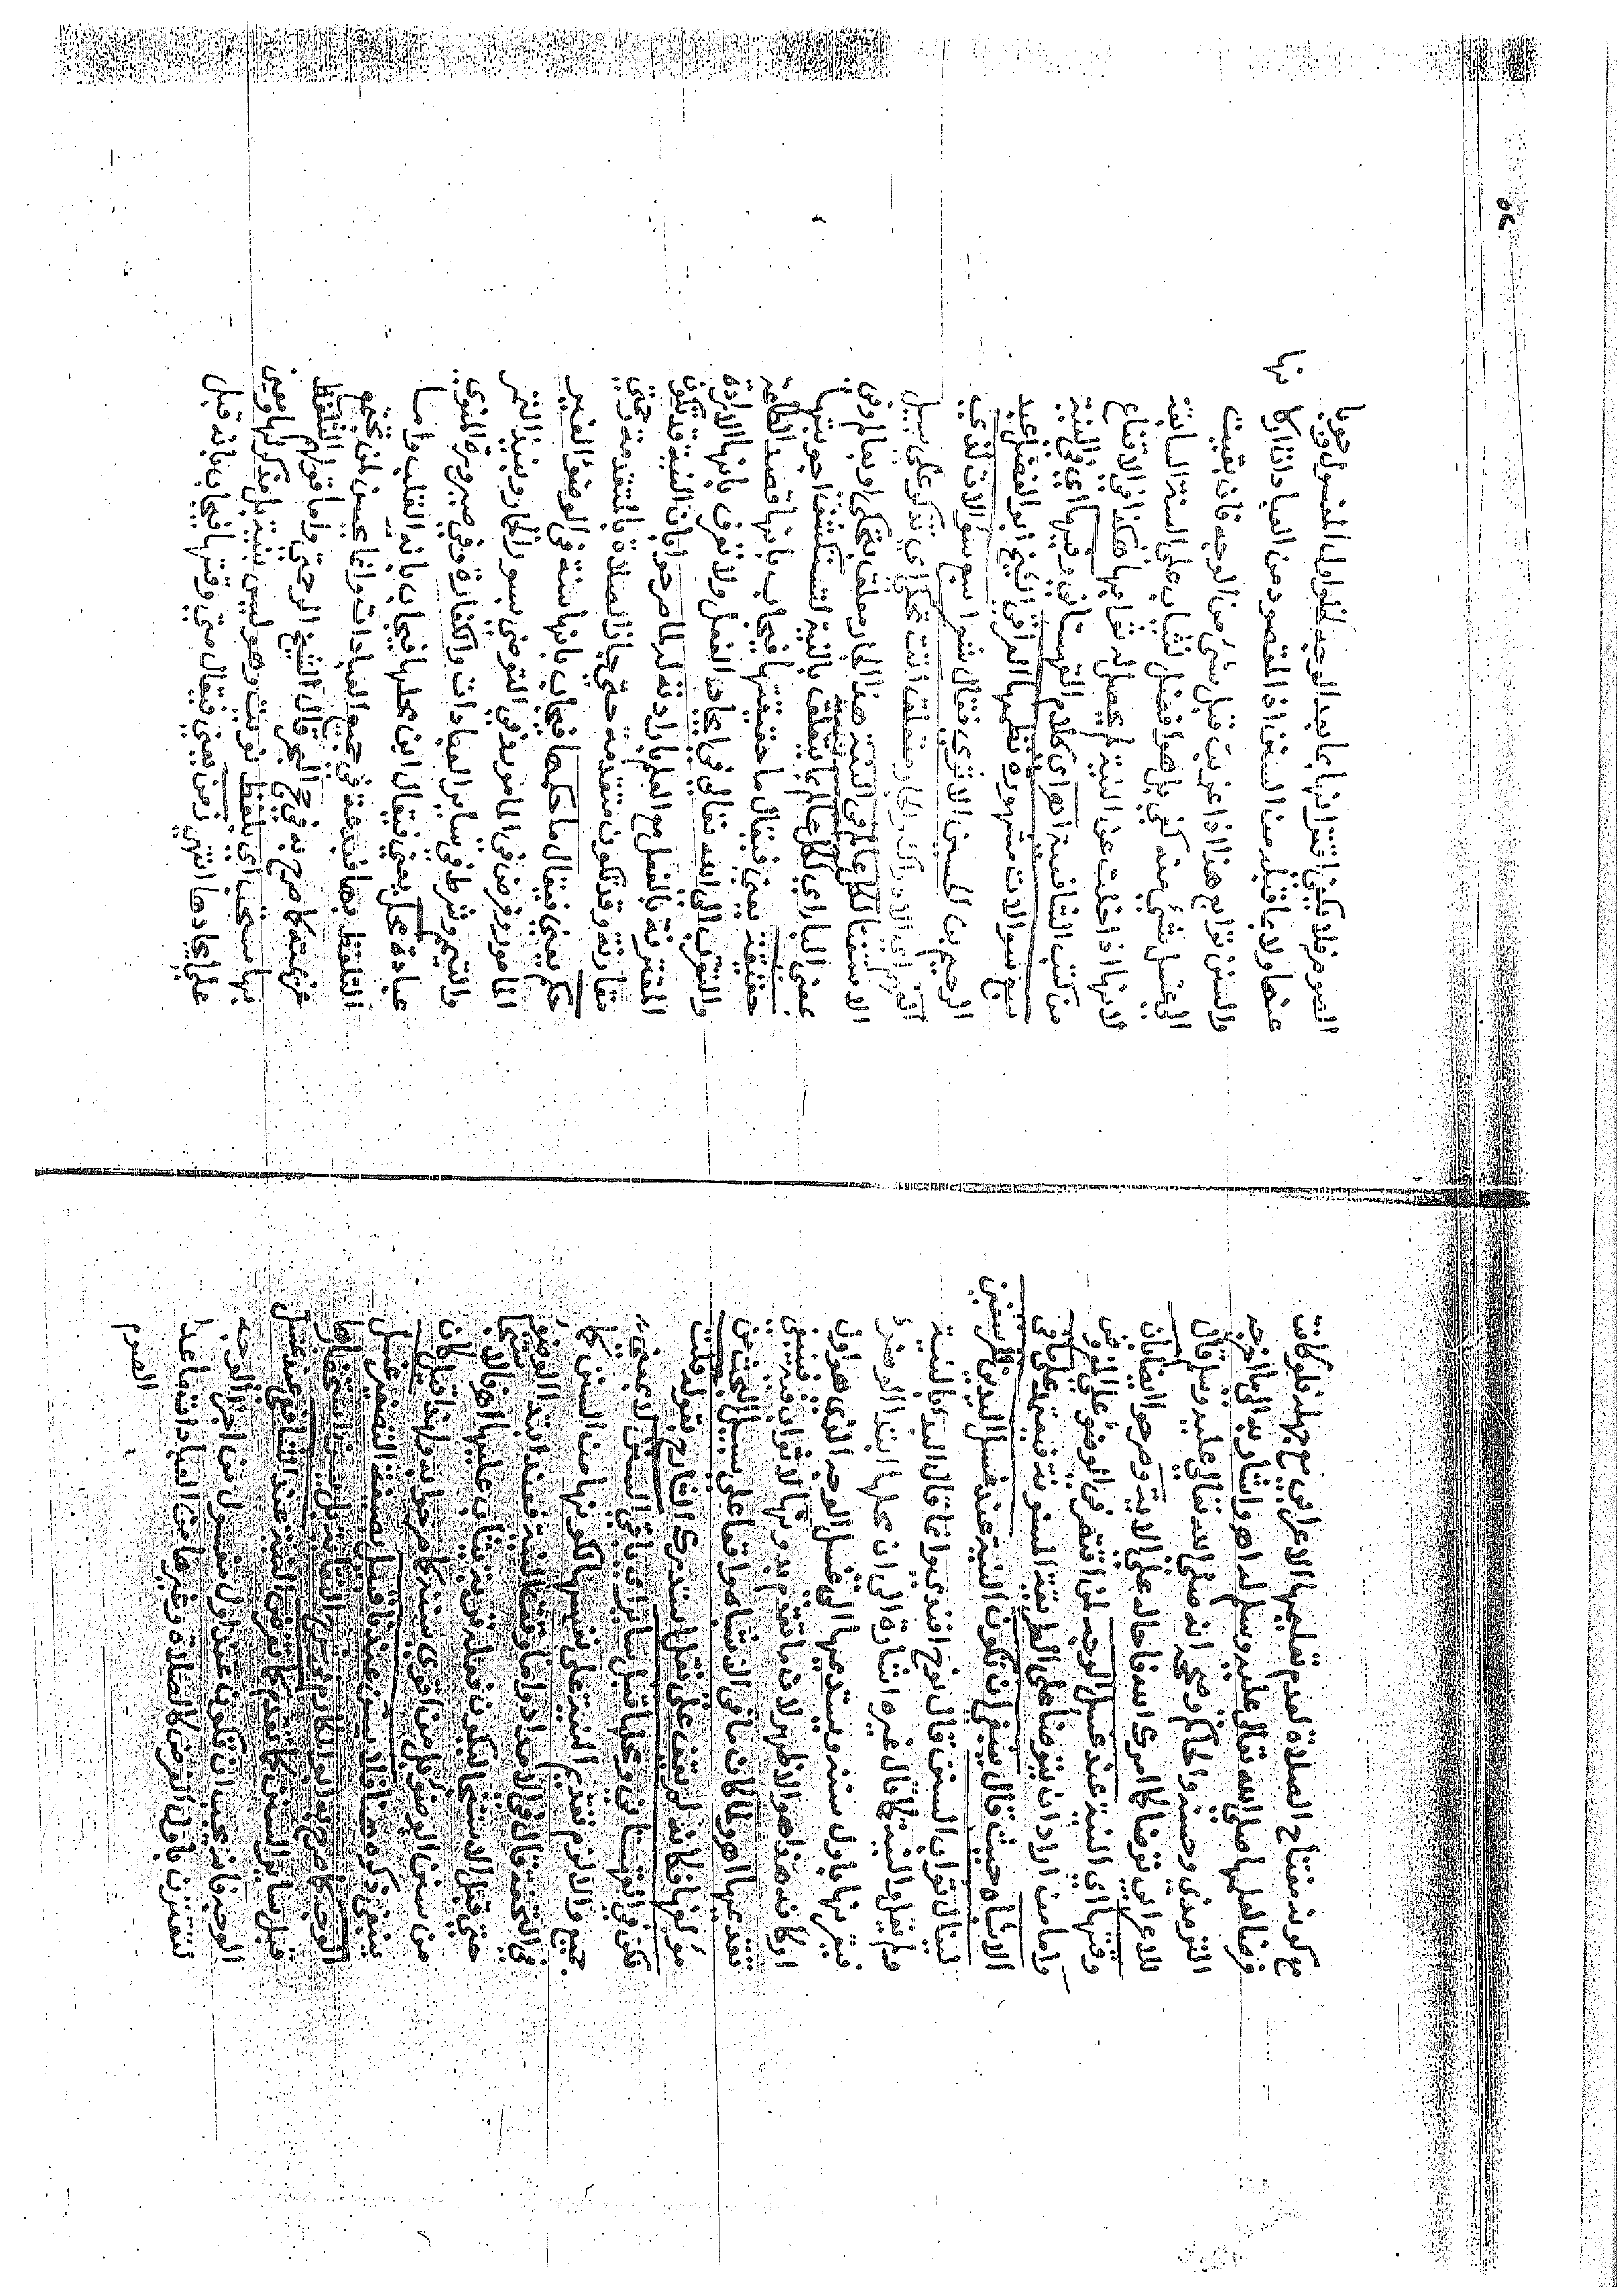 مع كونه مفتاح الصلاة لعدم تعليمها الاعرابي مع جهله فلو كانت
فرضا لعلمها صلى الله تعالى عليه وسلم له اهـ واشار به الى ما اخرجه
الترمذي وحسنه والحاكم وصححه انه صلى الله تعالى عليه وسلم قال
للاعرابي توضأ كما امرك الله فاحاله على الآية وصرحوا ايضا بان
وقتها اي النية عند غسل الوجه لمن اقتصر في الوضوء على الفرض
واما من اراد ان يتوضأ على الطريقة المسنونة فيعتمد على ما في
الاشباه حيث قال ينبغي ان تكون النية عند غسل اليدين للرسغين
لينال ثواب السنن قال نوح افندي وانما قال البداءة بالنية
ولم يقل والنية كما قال غيره اشارة الى ان محلها ابتداء الوضوء
فيقرنها باول سننه ويستديمها الى غسل الوجه الذي هو اول
اركانه هذا هو الاظهر لان ما تقدم بدونها لا ثواب فيه فينبغي
تقديمها اهـ ولما كان ما في الاشباه واقعا على سبيل البحث من
مؤلفها فكانه لم يقف على نقل استدرك الشارح بقوله قلت
لكن في القهستاني ومحلها قبل سائر اي باقي السنن لا بمعنى
جميع والا لزم تقديم النية على نفسها لكونها من السنن كما
في التحفة قال في الامداد واما وقت النية فعند ابتداء الوضوء
حتى قبل الاستنجاء ليكون فعله قربة يثاب عليها اهـ فالاستنجاء
من سنن الوضوء بل من اقوى سننه كما صرحوا به ولهذا قيل كان
ينبغي ذكره هنا فلا يسن عندنا قبيل بصيغة التصغير غسل
الوجه كما صرح به ابو المكارم في شرح النقاية بل يسن استحضارها
قبل سائر السنن كما تقدم كما تفرض النية عند الشافعي عند غسل
الوجه فانه يجب ان تكون عند اول مغسول من اجزاء الوجه
لتقترن باول الفرض كالصلاة وغيرها من العبادات ما عدا
الصوم
الصوم فلا يكفي اقترانها بما بعد الوجه لخلو اول المغسول وجوبا
عنها ولا بما قبله من السنن اذ المقصود من العبادات اركانها
والسنن توابع هذا اذا عزبت قبل شيء من الوجه فان بقيت
الى غسل شيء منه كفى بل هو افضل ليثاب على السنن السابقة
لانها اذا خلت عن النية لم يحصل له ثوابها هكذا في الاقناع
من كتب الشافعية اهـ اي كلام القهستاني وفيها اي في النية
سبع سوالات مشهورة نظمها العراقي الشيخ ابو الفضل عبد
الرحيم بن الحسين الاثري فقال شعرا سبع سوالات لذي
الفهم اي الادراك والجار متعلق اتت تحكى اي تذكر على سبيل
الاستفتاء لكل عالم في النية هذا الجار متعلق بتحكى او بعالم وفي
بمعنى الباء اي لكل عالم بما يتعلق بالنية لتستكشف اجوبتها
حقيقة يعني فيقال ما حقيقتها فيجاب بانها قصد الطاعة
والتقرب الى الله تعالى في ايجاد الفعل ولا تعرف بانها الارادة
المقترنة بالفعل مع العلم بارادته لما صرحوا بان النية قد تكون
مقارنة وقد تكون متقدمة حتى جاز الصلاة بالمتقدمة وحتى
حكم يعني فيقال ما حكمها فيجاب بانها سنة في الوضوء الغير
المامور وفرض في المامور به وفي التوضئ بسور الحمار ونبيذ التمر
والتيمم وشرط في سائر العبادات والكفارة وفي صيرورة المنوي
عبادة محل يعني فيقال اين محلها فيجاب بانه القلب واما
التلفظ بها فبدعة في جميع العبادات وانما يحسن لمن تجتمع
عزيمته كما صرح به في حج البحر قال الشيخ الرحمتي واما قولهم التلفظ
بها مستحب اي بلفظ نويت وهو ليس بنية بل مذكر لها ومعين
على ايجادها انتهى زمن يعني فيقال متى وقتها فيجاب بانه قبل